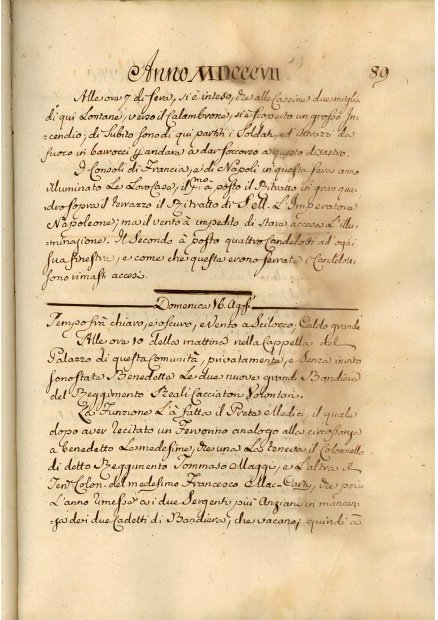 Anno MDCCCVII 89
Alle ore 7 di sera, si è inteso, che alle Cascine due miglia
di qui Lontane, verso il Calambrone, si è scoperto un grosso In-
=cendio; di Subito sono di qui partiti i Soldati, ed Attrazzi da
fuoco in barocci p andare a dar soccorso a questo disastro.
I Consoli di Francia, e di Napoli in questa sera anno
illuminato Le Loro Case, il pmo à posto il Ritratto in gran qua-
dro sopra il Terrazzo il Ritratto di S. ell. L'Imperatore
Napoleone; ma il vento à impedito di stara accesa L'illu-
minazione. Il Secondo à posto quattro Candelotti ad ogni
sua finestra, e come che queste erono serrate i Candelotti
sono rimasti accesi.
Domenica 16. Agto
Tempo frà chiaro, e oscuro, e Vento a Scilocco, Caldo grande
Alle ore 10 della mattina nella Cappella del
Palazzo di questa Comunità, privatamente, e Senza invito
sono state Benedette Le due nuove grandi Bandiere
del Reggimento Reali Cacciatori Volontari.
La Funzione L'à fatta il Prete Medici, il quale
dopo aver recitato un Fervorino analogo alla circostanza
a benedetto Le medesime, che una La teneva il Colonnello
di detto Reggimento Tommaso Maggi, e L'altra il
Tente Colon. del medesimo Francesco Mac-Carty, che poi
L'anno rimesse a i due Sergenti più Anziani in mancan-
za dei due Cadetti di Bandiera, che vacano; quindi à